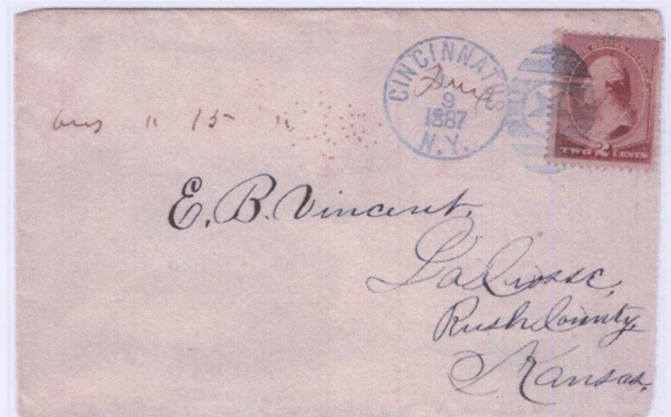 CINCINNATUS
9
1887
N.Y.
TWO 2 CENTS
15
E. B. Vincent,
LaCrosse,
Rush County,
Kansas,